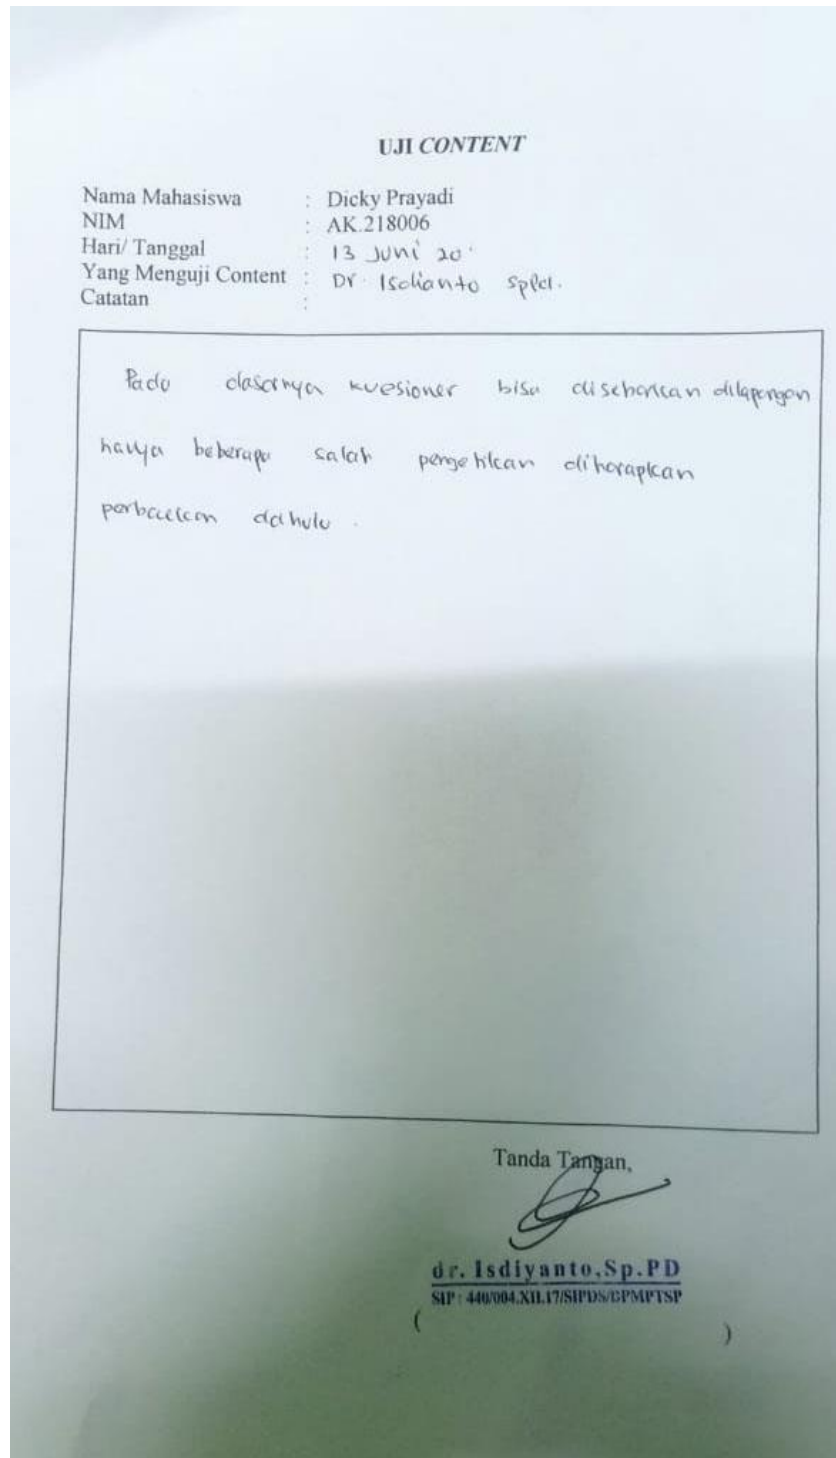 UJI CONTENT
Nama Mahasiswa : Dicky Prayadi
NIM : AK.218006
Hari/ Tanggal : 13 Juni 20
Yang Menguji Content : Dr. Isdianto SpPd.
Catatan :
Pada dasarnya kuesioner bisa disebarkan dilapangan
hanya beberapa salah pengetikan diharapkan
perbaikan dahulu.
Tanda Tangan,
dr. Isdiyanto,Sp.PD
SIP : 440/004.XII.17/SIPDS/BPMPTSP
( )